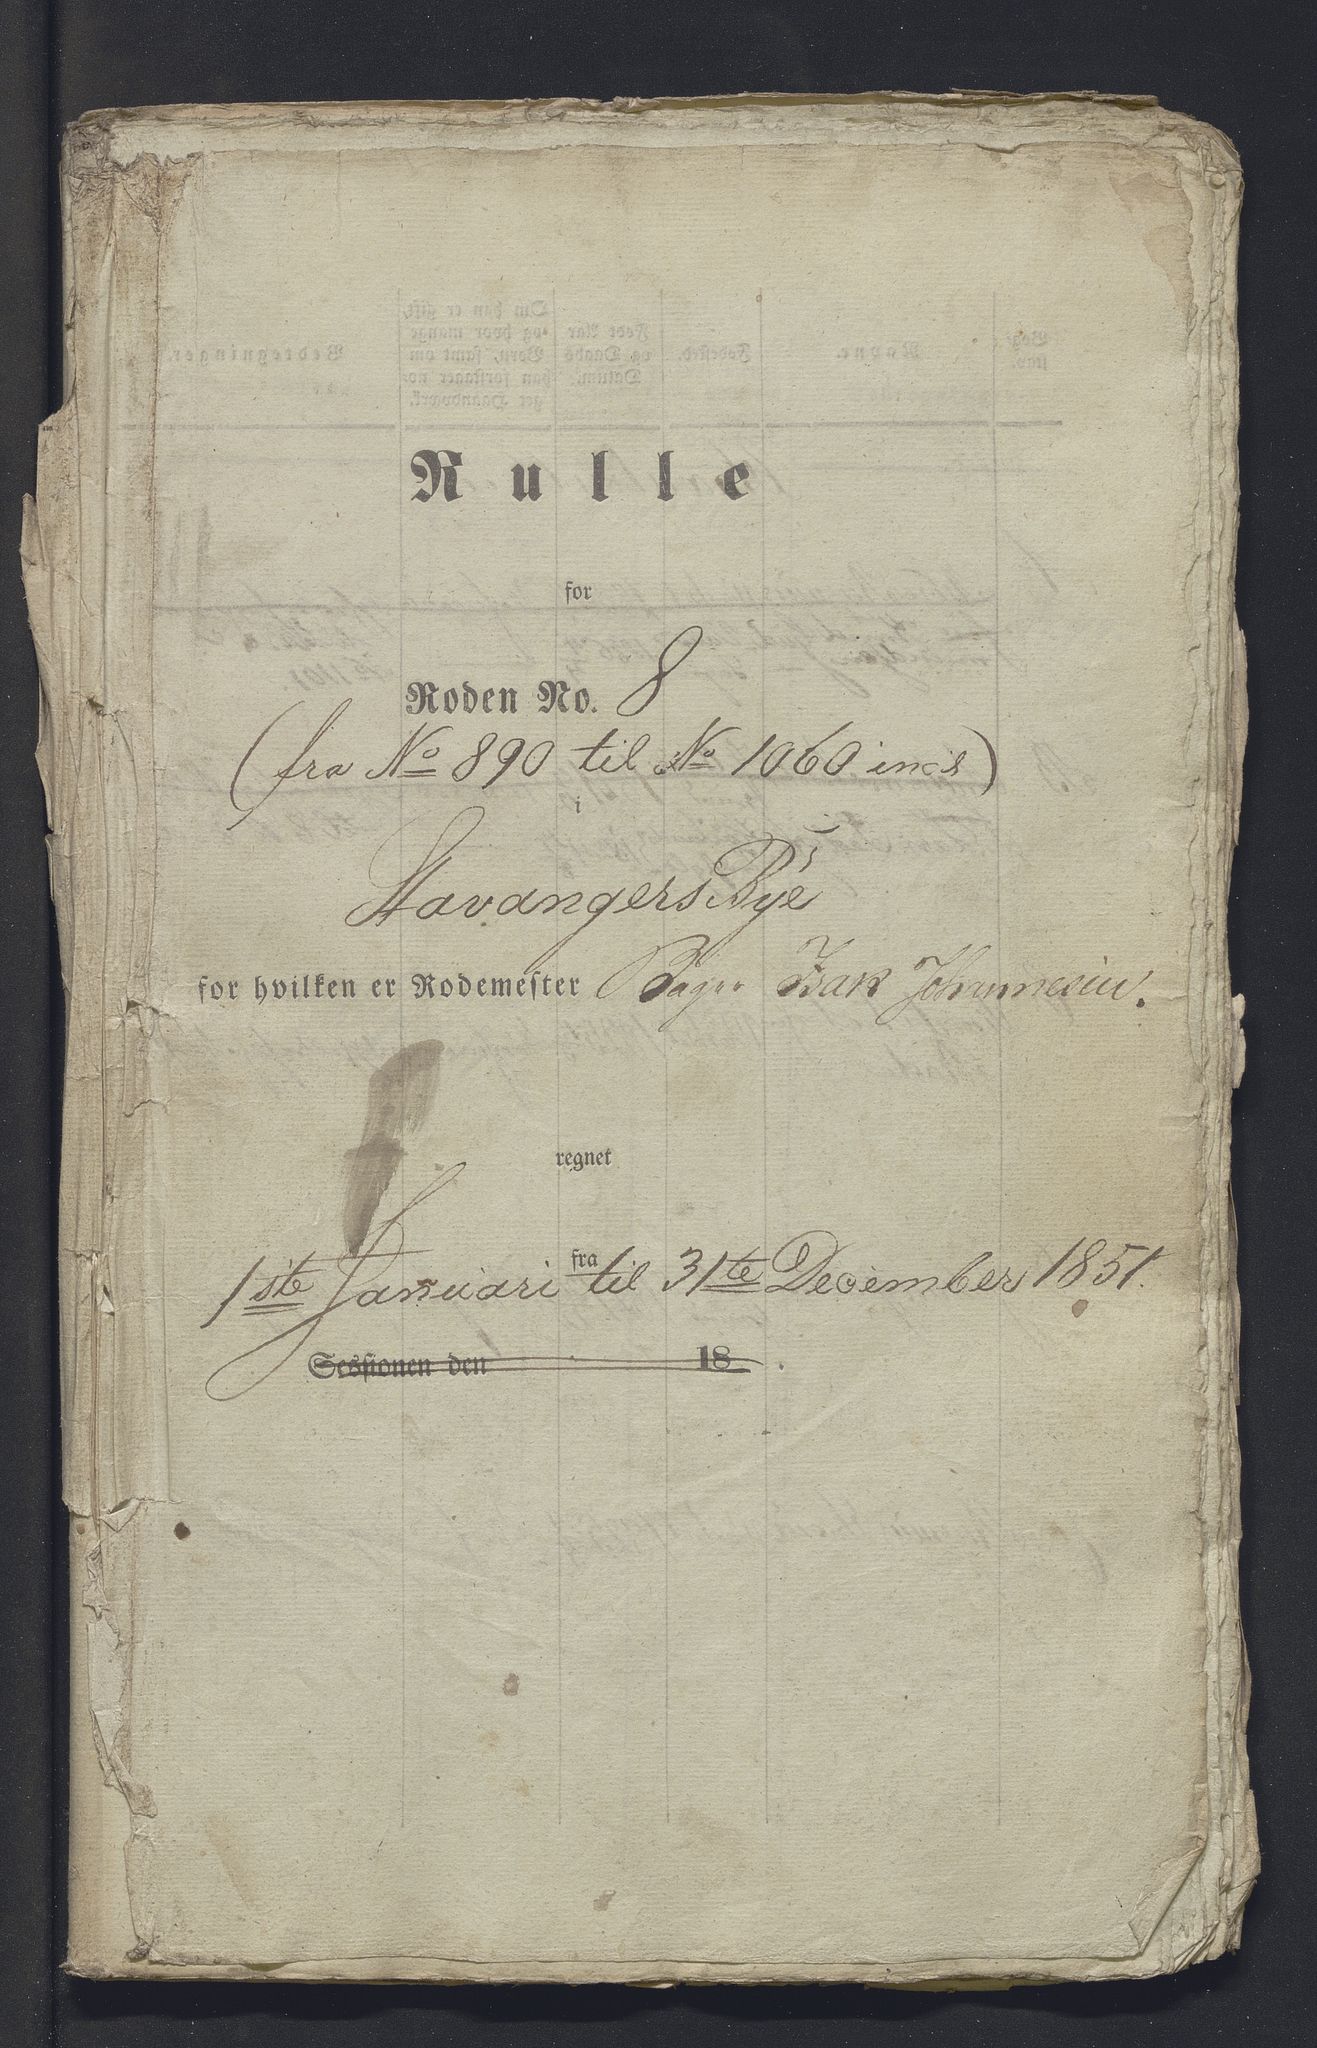 Rulle
for
Roden No. 8
(fra No 890 til No 1060 incl)
i
Stavangers Bye
for hvilken er Rodemester Bager Isak Johannesen.
regnet
fra
1ste Januari til 31te December 1851.
Sessionen den 18